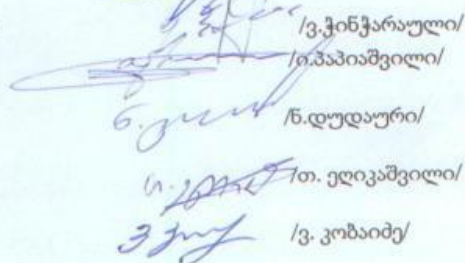 /ვ.ჭინჭარაული/
/ი.პაპიაშვილი/
/ნ.დუდაური/
/თ. ეღიკაშვილი/
/ვ. კობაიძე/